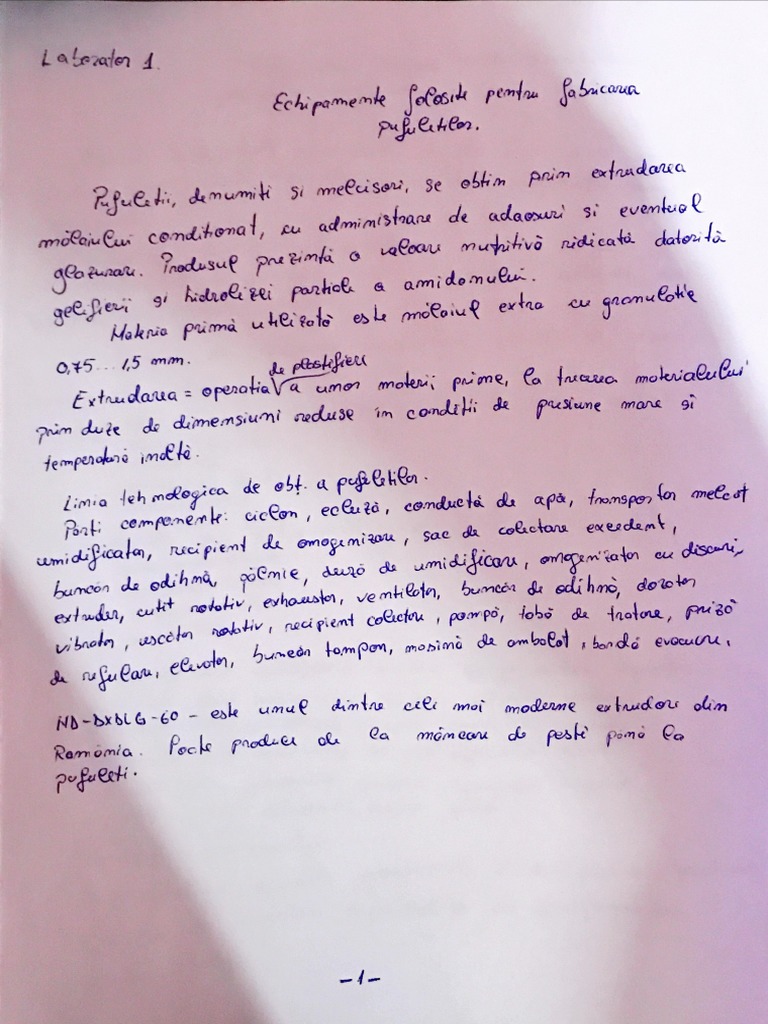 Laborator 1.
Echipamente folosite pentru fabricarea
pufuletilor.
Pufuletii, denumiti si melcisori, se obtin prin extrudarea
mălaiului conditionat, cu administrare de adaosuri si eventual
glazurare. Produsul prezintă o valoare nutritivă ridicată datorită
gelifierii si hidrolizei partiale a amidonului.
Materia primă utilizată este mălaiul extra cu granulatie
0,75...1,5 mm.
de plastifiere
Extrudarea = operatia √ a unor materii prime, la trecerea materialului
prin duze de dimensiuni reduse in conditii de presiune mare si
temperatură inaltă.
Linia tehnologica de obt. a pufuletilor.
Parti componente: ciclon, ecluză, conductă de apă, transportor melcat
umidificator, recipient de omogenizare, sac de colectare excedent,
buncăr de odihnă, pâlnie, duză de umidificare, omogenizator cu discuri,
extruder, cutit rotativ, exhaustor, ventilator, buncăr de odihnă, dozator
vibrator, uscător rotativ, recipient colector, pompă, tobă de tratare, priză
de refulare, elevator, buncăr tampon, masină de ambalat, bandă evacuare.
ND-DXDLG-60 - este unul dintre cele mai moderne extrudere din
România. Poate produce de la mâncare de pesti pană la
pufuleti.
-1-